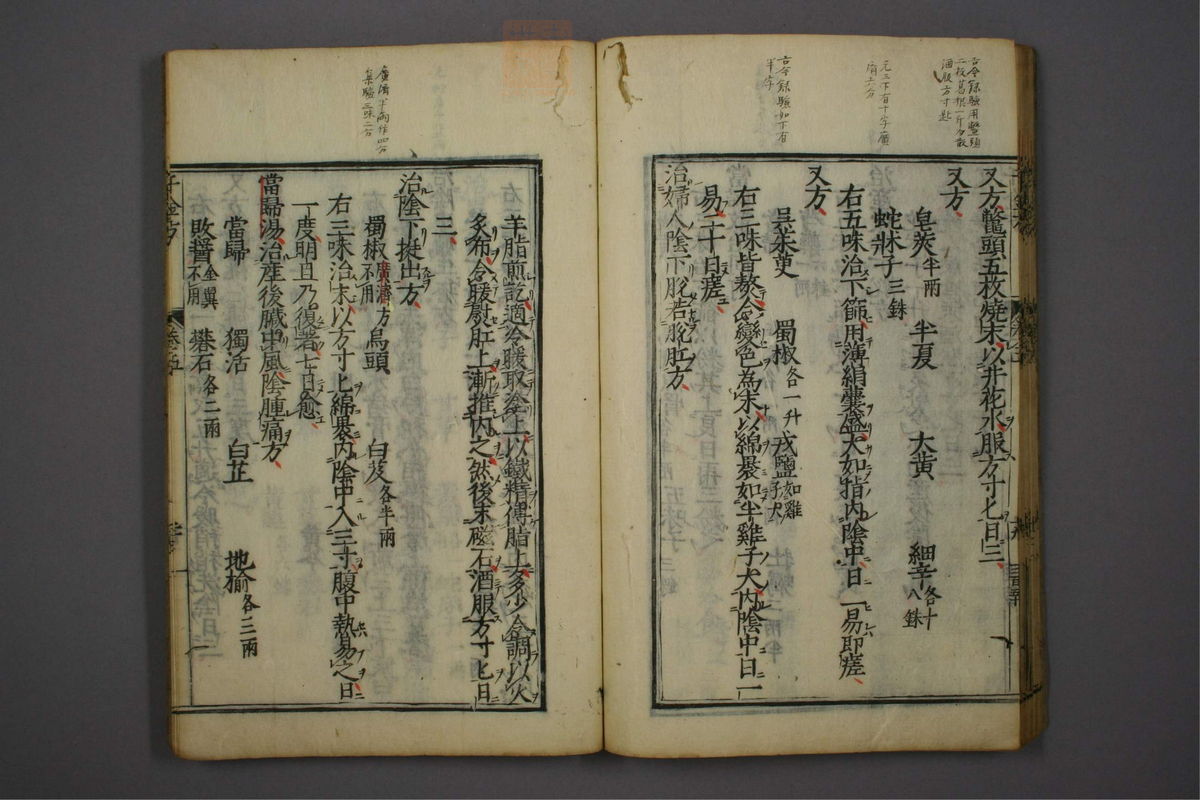 古今録驗用鼈頭
二枚葛根一斤為散
酒服方寸匕
元三下有十字廣
古今録驗如下有
半字
又方鼈頭五枚燒末以井花水服方寸匕日三
又方
皂莢半兩 半夏 大黃 細辛各十八銖
蛇牀子三銖
右五味治下篩用薄絹囊盛大如指內陰中日二易即瘥
又方
吳茱萸 蜀椒各一升 戎鹽如雞子大
右三味皆熬令變色為末以綿裹如半雞子大內陰中日一
易二十日瘥
治婦人陰下脫若脫肛方
廣濟半兩作四分
集驗三味二分
羊脂煎訖適冷暖取塗上以鐵精傅脂上多少令調以火
炙布令暖熨肛上漸推內之然後末磁石酒服方寸匕日
三
治陰下挺出方
蜀椒 不用 廣濟方 烏頭 白芨各半兩
右三味治末以方寸匕綿裹內陰中入三寸腹中熱易之日
一度明旦乃復著七日愈
當歸湯治產後臟中風陰腫痛方
當歸 獨活 白芷 地榆各三兩
敗醬 千金翼不用 礬石各二兩
千金方 卷三